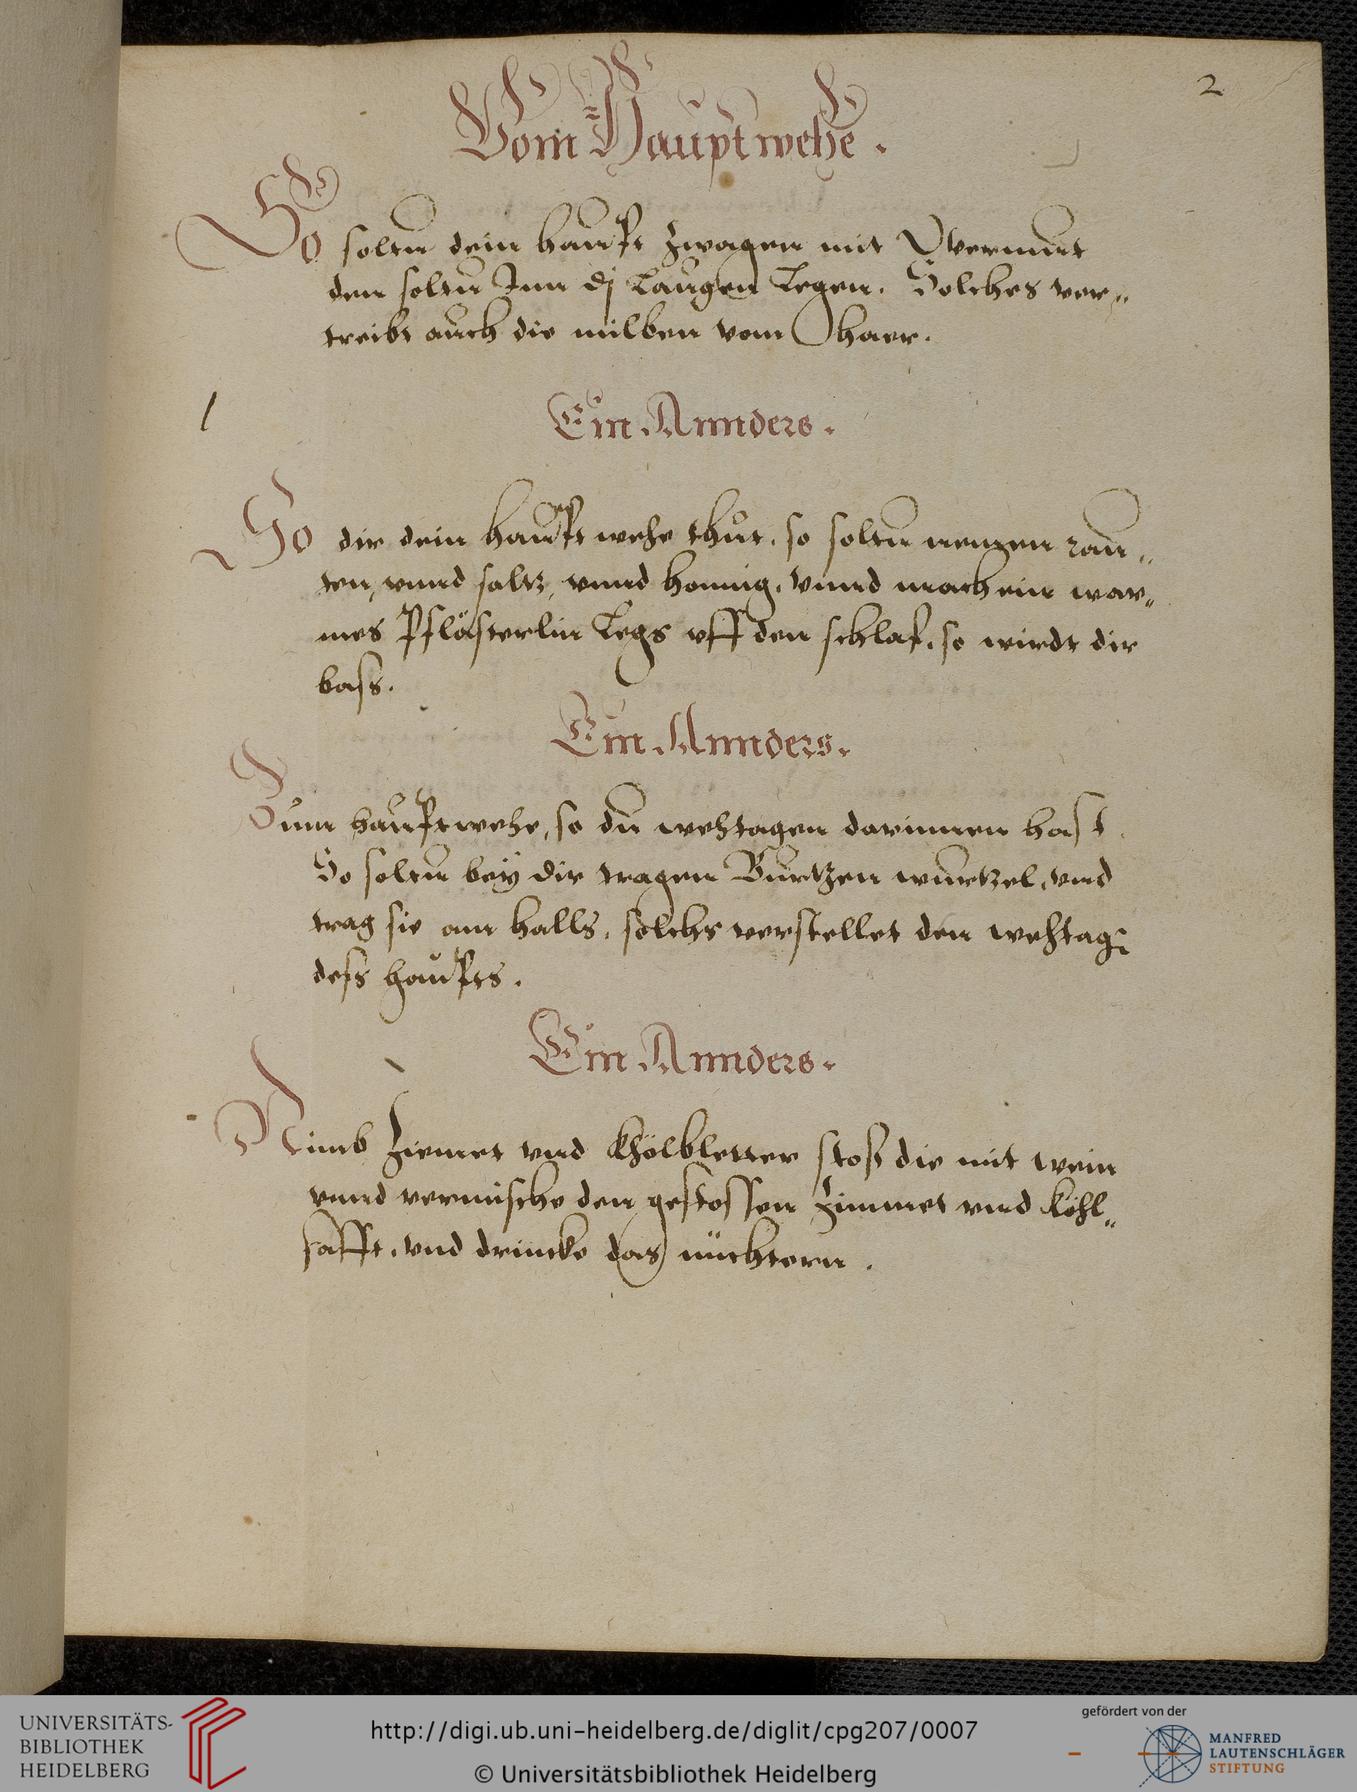 2
Vom Hauptwehe.
So soltu dein haupt zwagen mit Wermut
den soltu Inn dj Laugen Legen. Solches ver„
treibt auch die milben vom haer.
Ein Annders.
So dir dein haupt wehe thut, so soltu nemen rau„
ten, vnnd saltz, vnnd honnig, vnnd mach ein war„
mes Pflästerlin Legs vff den schlaf, so wirdt dir
bass.
Ein Annders.
Zum hauptwehe, so du wehtagen darinnen hast
So soltu bey dir tragen Burtzen wurtzel, vnd
trag sie am halls, solchs verstellet den wehtag
dess haupts.
Ein Annders.
Nimb Ziemet vnd Khölbletter stoß die mit wein
vnnd vermische den gestossen Zimmet vnd köhl„
safft, vnd drincke das nüchtern.
UNIVERSITÄTS-
BIBLIOTHEK
HEIDELBERG
http://digi.ub.uni-heidelberg.de/diglit/cpg207/0007
© Universitätsbibliothek Heidelberg
gefördert von der
MANFRED
LAUTENSCHLÄGER
STIFTUNG